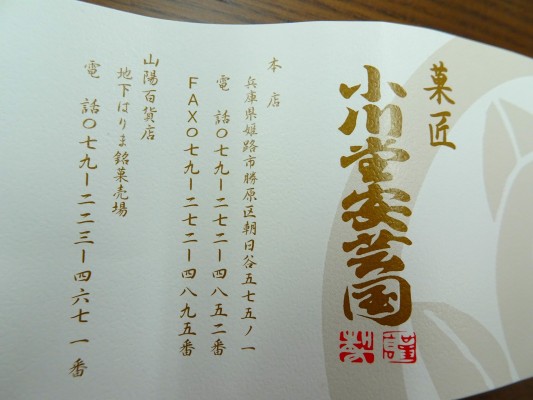 菓匠
小川堂安芸国
謹製
本店
兵庫県姫路市勝原区朝日谷五七五ノ一
電話〇七九ー二七二ー四八五二番
FAX〇七九ー二七二ー四八九五番
山陽百貨店
地下はりま銘菓売場
電話〇七九ー二二三ー四六七一番